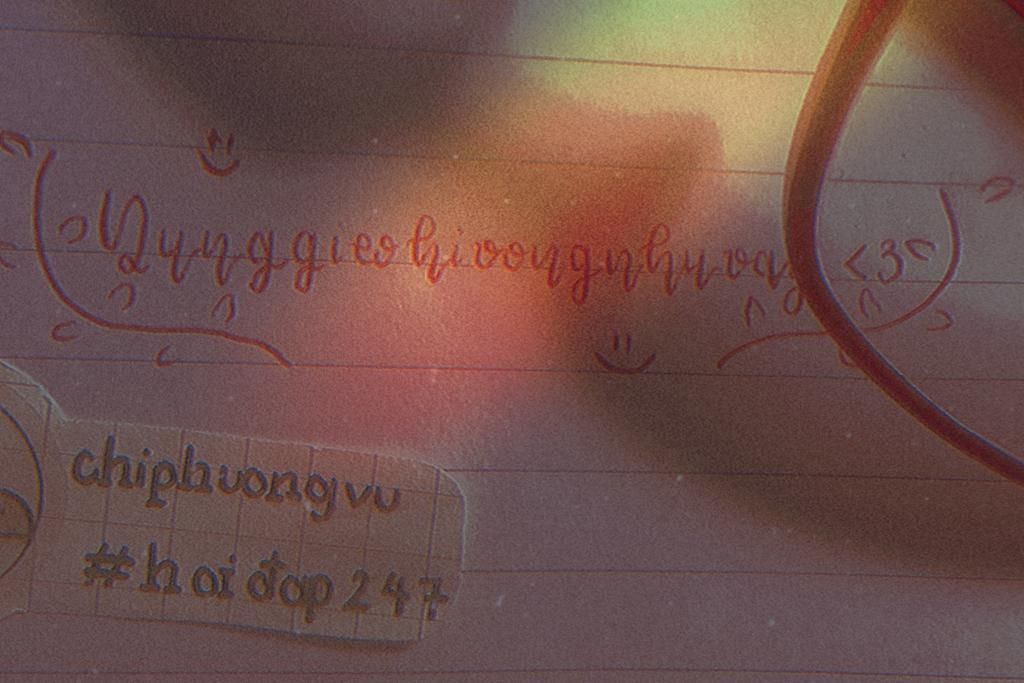 Yunggieohivongnhuvay <3
chiphuongvu
#hoiđap247